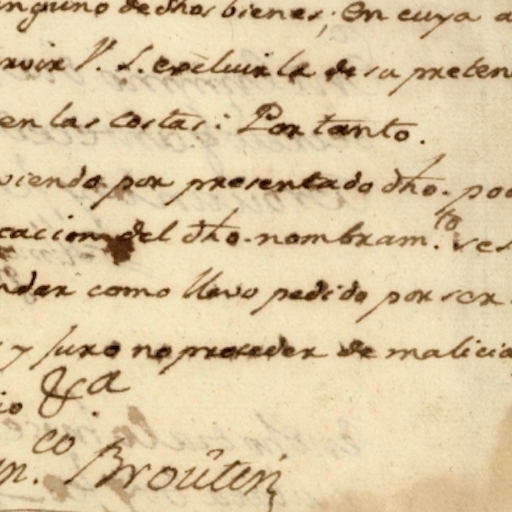 inguno de dhos bienes; En cuya a
rvir V. S. excluirla de su preten
en las costas: Por tanto.
viendo por presentado dho. pod
cacion del dho. nombram.to se s
ndar como llevo pedido por ser
y juro no proceder de malicia
io &a.
n.co Broutin